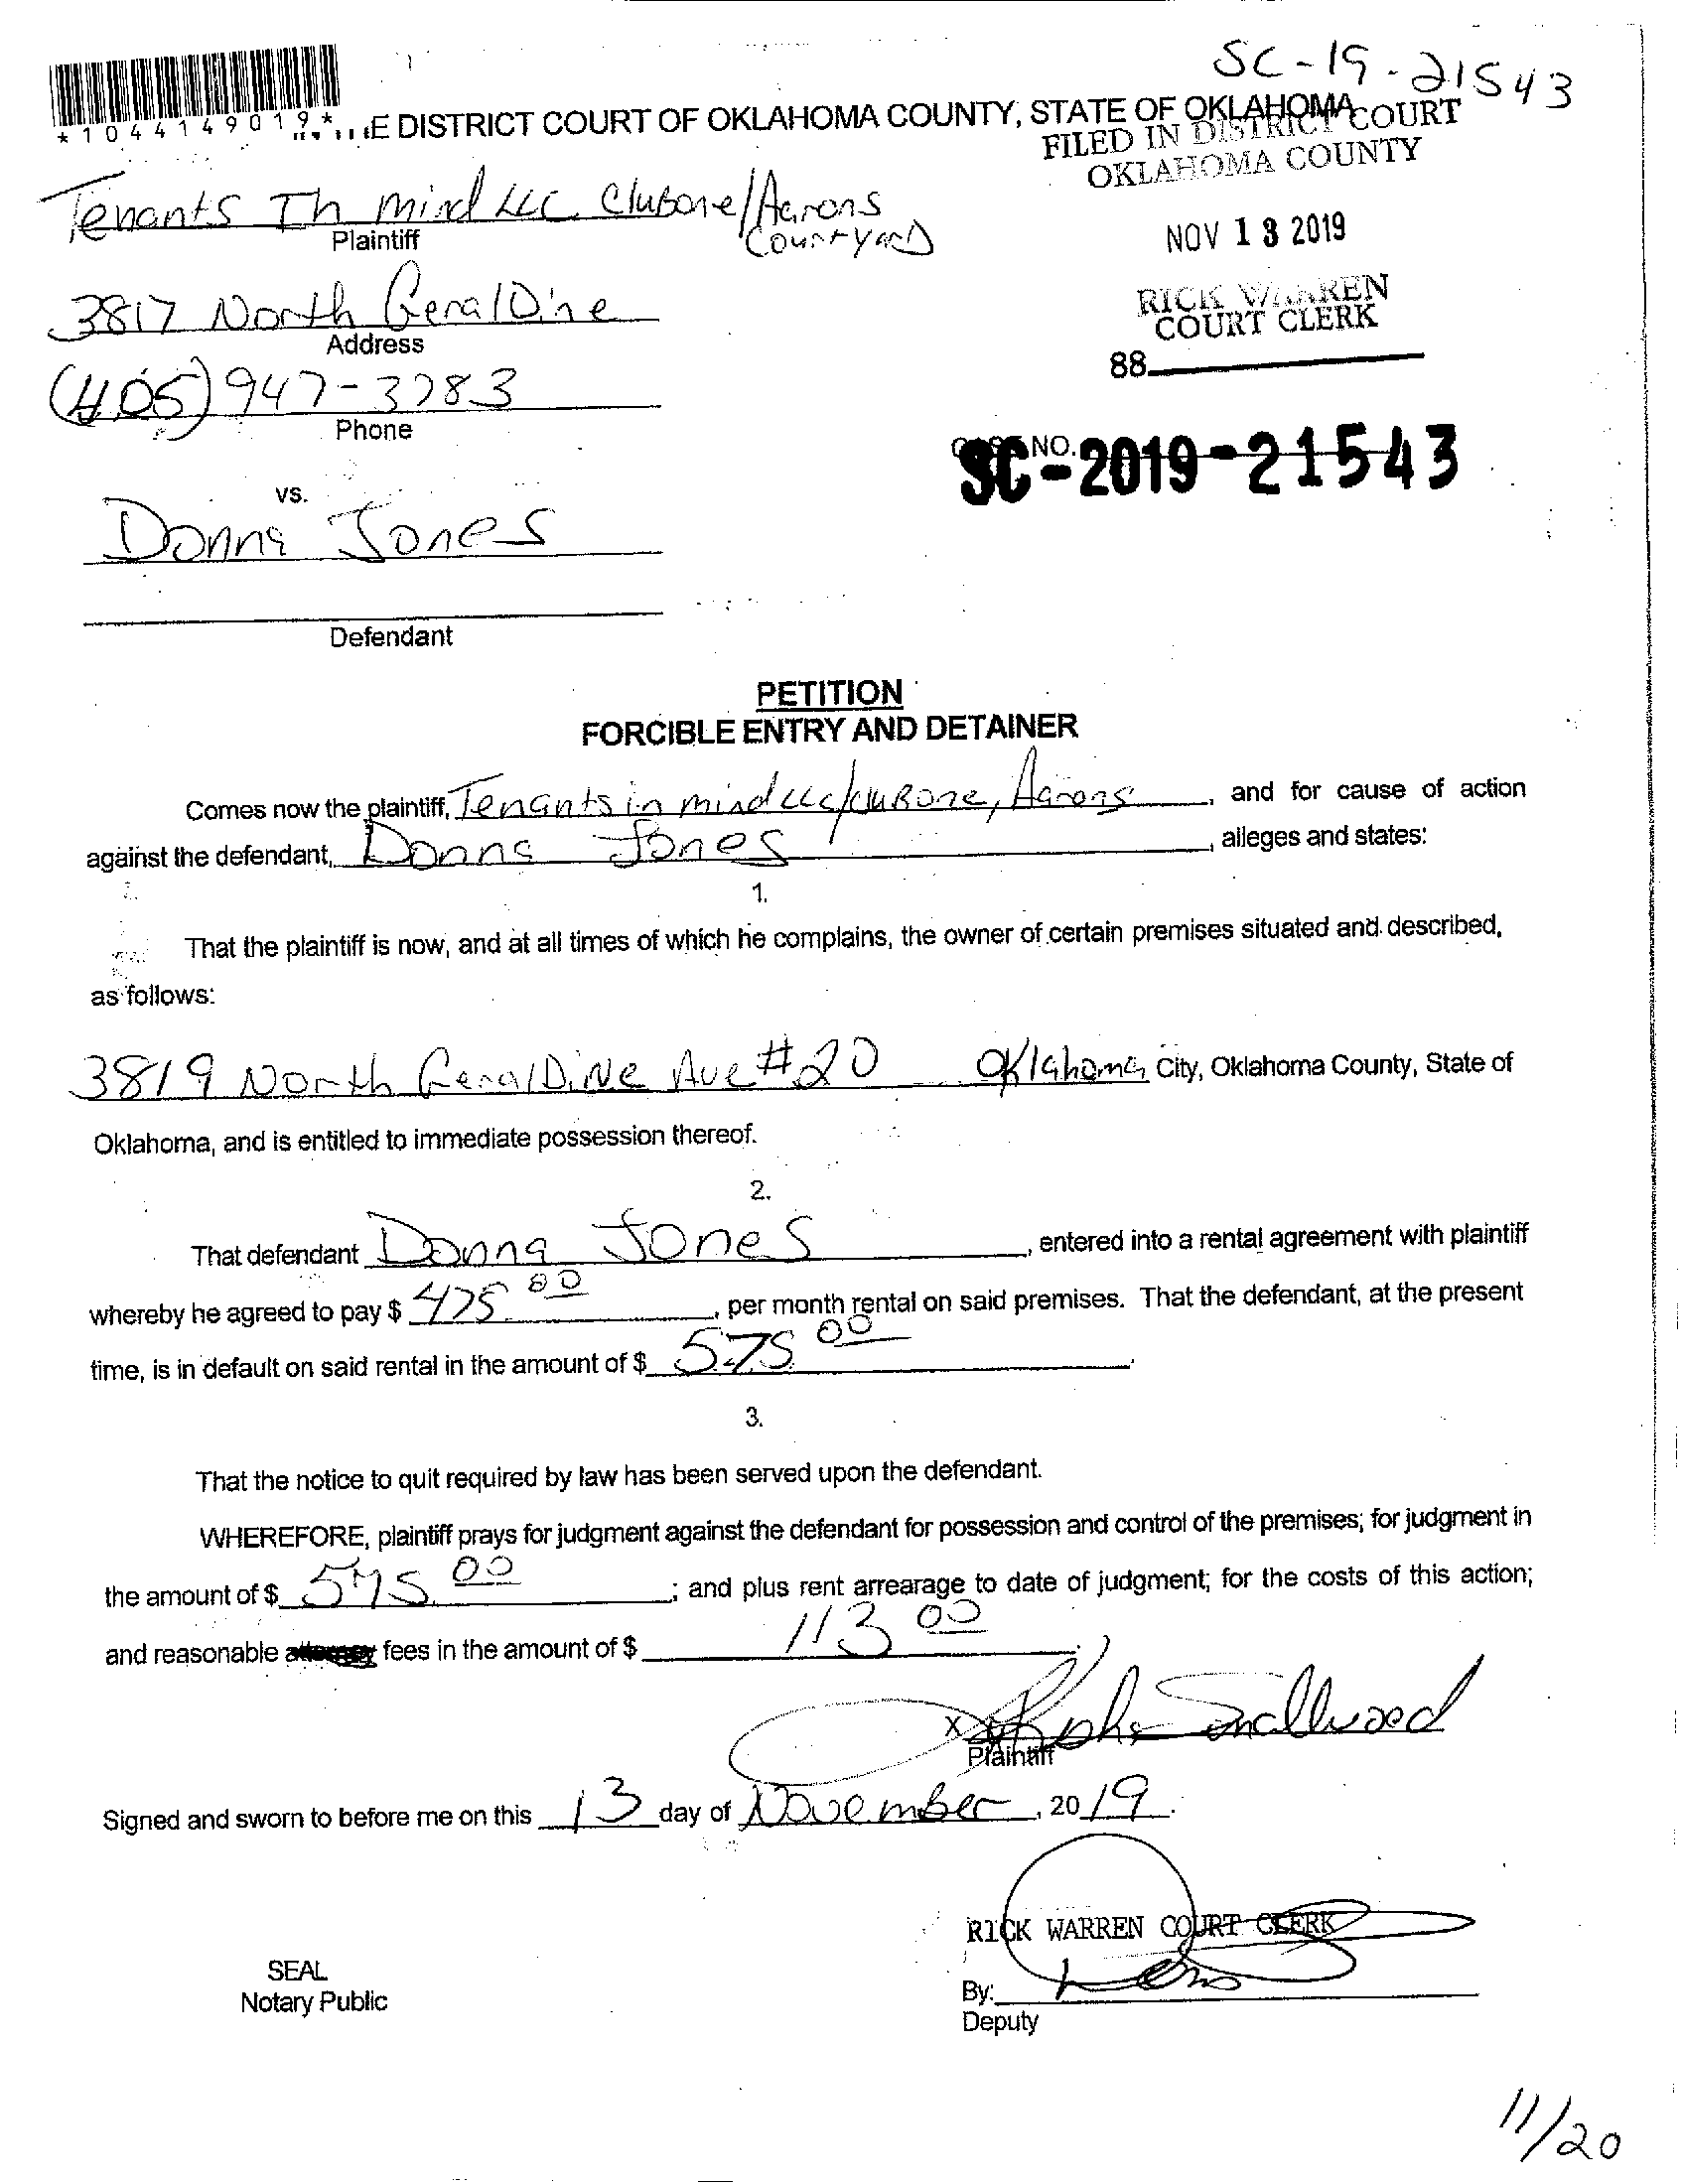 SC-19-21543
*1044149019*
E DISTRICT COURT OF OKLAHOMA COUNTY, STATE OF OKLAHOMA
FILED IN DISTRICT COURT
OKLAHOMA COUNTY
Tenants In mind LLC. Clubone/Aarons
Courtyard
Plaintiff
NOV 13 2019
3817 North GeralDine
Address
RICK WARREN
COURT CLERK
88
(405) 947-3783
Phone
NO.
SC-2019-21543
vs.
Donna Jones
Defendant
PETITION
FORCIBLE ENTRY AND DETAINER
Comes now the plaintiff, Tenants in mind LLC/CluBone, Aarons, and for cause of action
against the defendant, Donna Jones, alleges and states:
1.
That the plaintiff is now, and at all times of which he complains, the owner of certain premises situated and described,
as follows:
3819 North GeralDiNe Ave #20 Oklahoma City, Oklahoma County, State of
Oklahoma, and is entitled to immediate possession thereof.
2.
That defendant Donna Jones, entered into a rental agreement with plaintiff
whereby he agreed to pay $ 475.00, per month rental on said premises. That the defendant, at the present
time, is in default on said rental in the amount of $ 575.00.
3.
That the notice to quit required by law has been served upon the defendant.
WHEREFORE, plaintiff prays for judgment against the defendant for possession and control of the premises; for judgment in
the amount of $ 575.00; and plus rent arrearage to date of judgment; for the costs of this action;
and reasonable fees in the amount of $ 113 00.
X Smallwood
Plaintiff
Signed and sworn to before me on this 13 day of November, 2019.
RICK WARREN COURT CLERK
SEAL
Notary Public
By:
Deputy
11/20